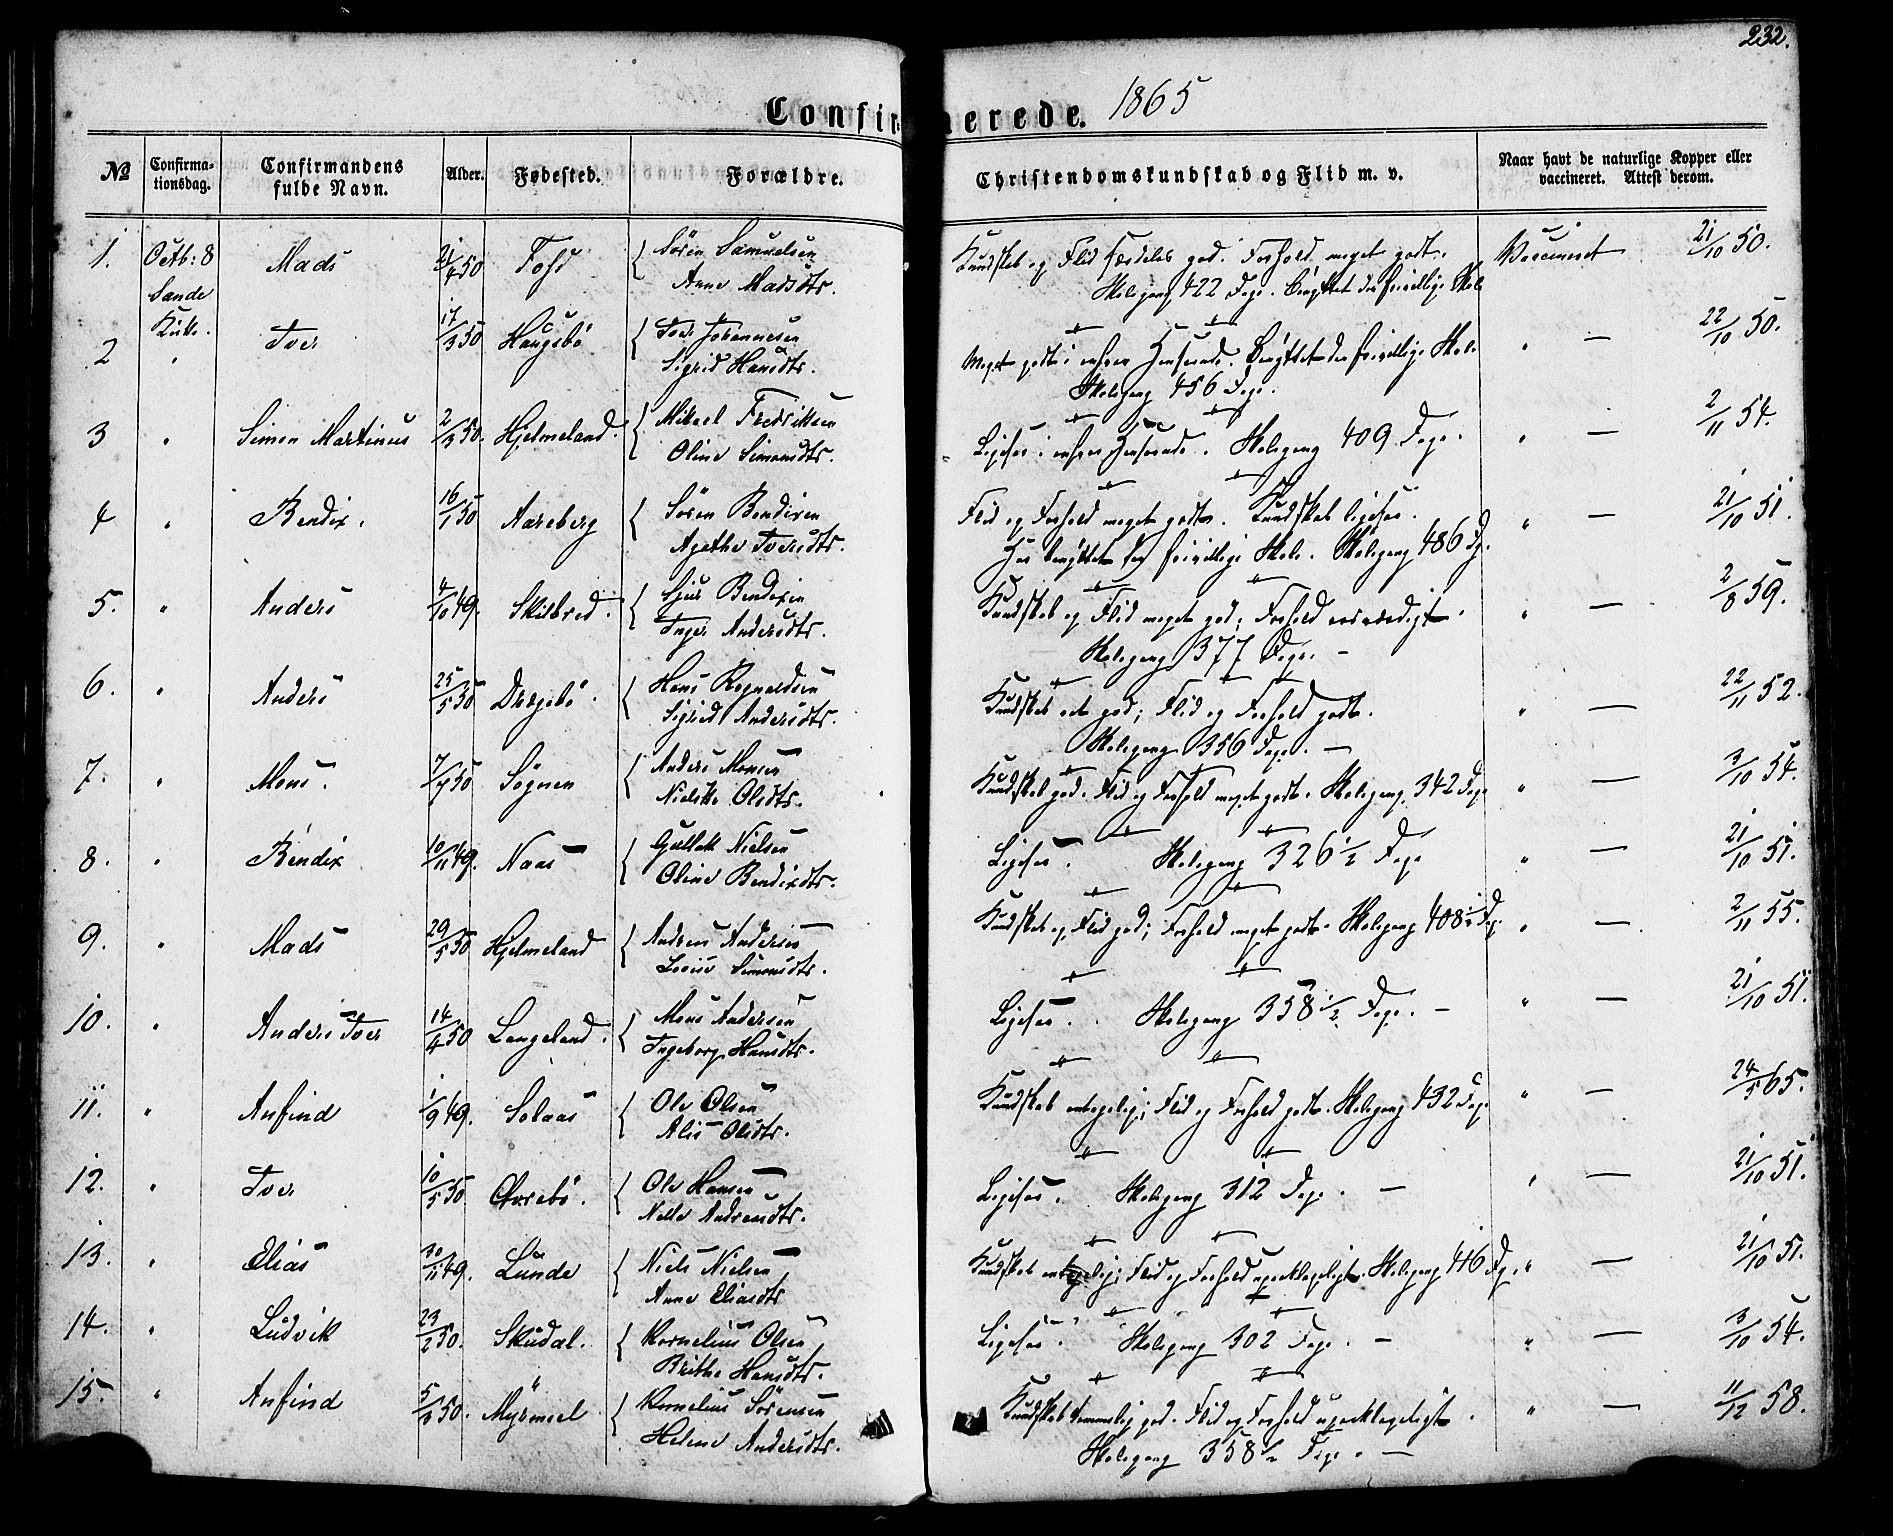 232.
Confirmerede. 1865
№
Confirma-
tionsdag.
Confirmandens
fulde Navn.
Alder.
Fødested.
Forældre.
Christendomskundskab og Flid m. v.
Naar havt de naturlige Kopper eller
vaccineret. Attest derom.
1. Octb: 8 Mads 21/4 50 Tofs { Sören Samuelsen Kundskab og Flid særdeles god. Forhold meget godt. Vaccineret 21/10 50.
Sande Anne Madsdtr. Skolegang 422 Dage. Benyttet den frivillige Skole
Kirke.
2 " Iver 17/3 50 Haugsbö { Iver Johannesen Meget godt i enhver Henseende. Benyttet den frivillige Skole " — 22/10 50.
Sigrid Hansdtr. Skolegang 456 Dage.
3 " Simon Martinus 2/3 50. Hjelmeland. { Mikael Fredriksen Ligesaa i enhver Henseende. Skolegang 409 Dage. " — 2/11 54.
Oline Simonsdtr.
4 " Bendix. 16/1 50 Aareberg { Sören Bendixen Flid og Forhold meget godt. Kundskab ligesaa. " — 21/10 51.
Agathe Iversdtr. Har benyttet den frivillige Skole. Skolegang 486 Dg.
5. " Anders 4/10 49. Skilbred. { Sjur Bendixen Kundskab og Flid meget god; Forhold " — 2/8 59.
Inger Andersdtr. Skolegang 377 Dage. —
6. " Anders 25/5 50 Dregebö. { Hans Rognaldsen Kundskab god; Flid og Forhold godt. " — 22/11 52.
Sigrid Andersdtr. Skolegang 356 Dage. —
7. " Mons. 7/7 50 Sögnen { Anders Monsen Kundskab god. Flid og Forhold meget godt. Skolegang 342 Dage " — 3/10 54.
Nielske Olsdtr.
8. " Bendix 10/11 49. Naas { Gullak Nielsen Ligesaa. Skolegang 326 1/2 Dage " — 21/10 51.
Oline Bendixdtr.
9. " Mads 29/5 50 Hjelmeland { Andreas Andersen Kundskab og Flid god; Forhold meget godt. Skolegang 408 1/2 Dag. " — 2/11 55.
Lovise Simonsdtr.
10. " Anders Iver 14/4 50 Langeland. { Mons Andersen Ligesaa. Skolegang 358 1/2 Dage. — " — 21/10 51.
Ingeborg Hansdtr.
11. " Anfind 1/9 49. Solaas { Ole Olsen Kundskab antagelig; Flid og Forhold godt. Skolegang 432 Dage " — 24/5 65.
Alis Olsdtr.
12. " Iver 10/5 50 Qvrebö. { Ole Hansen Ligesaa. Skolegang 312 Dage. — " — 21/10 51.
Nille Andreasdtr.
13. " Elias 30/11 49. Lunde { Niels Nielsen Kundskab antagelig; Flid og Forhold upaaklageligt. Skolegang 446 Dg. " — 21/10 51.
Anne Eliasdtr
14. " Ludvik 23/2 50. Skudal. { Kornelius Olsen Ligesaa. Skolegang 302 Dage. — " — 3/10 54.
Brithe Hansdtr.
15. " Anfind 5/3 50. Myrmel { Kornelius Sörensen Kundskab temmelig god. Flid og Forhold upaaklageligt. " — 11/12 58.
Helene Andersdtr. Skolegang 358 1/2 Dage. —